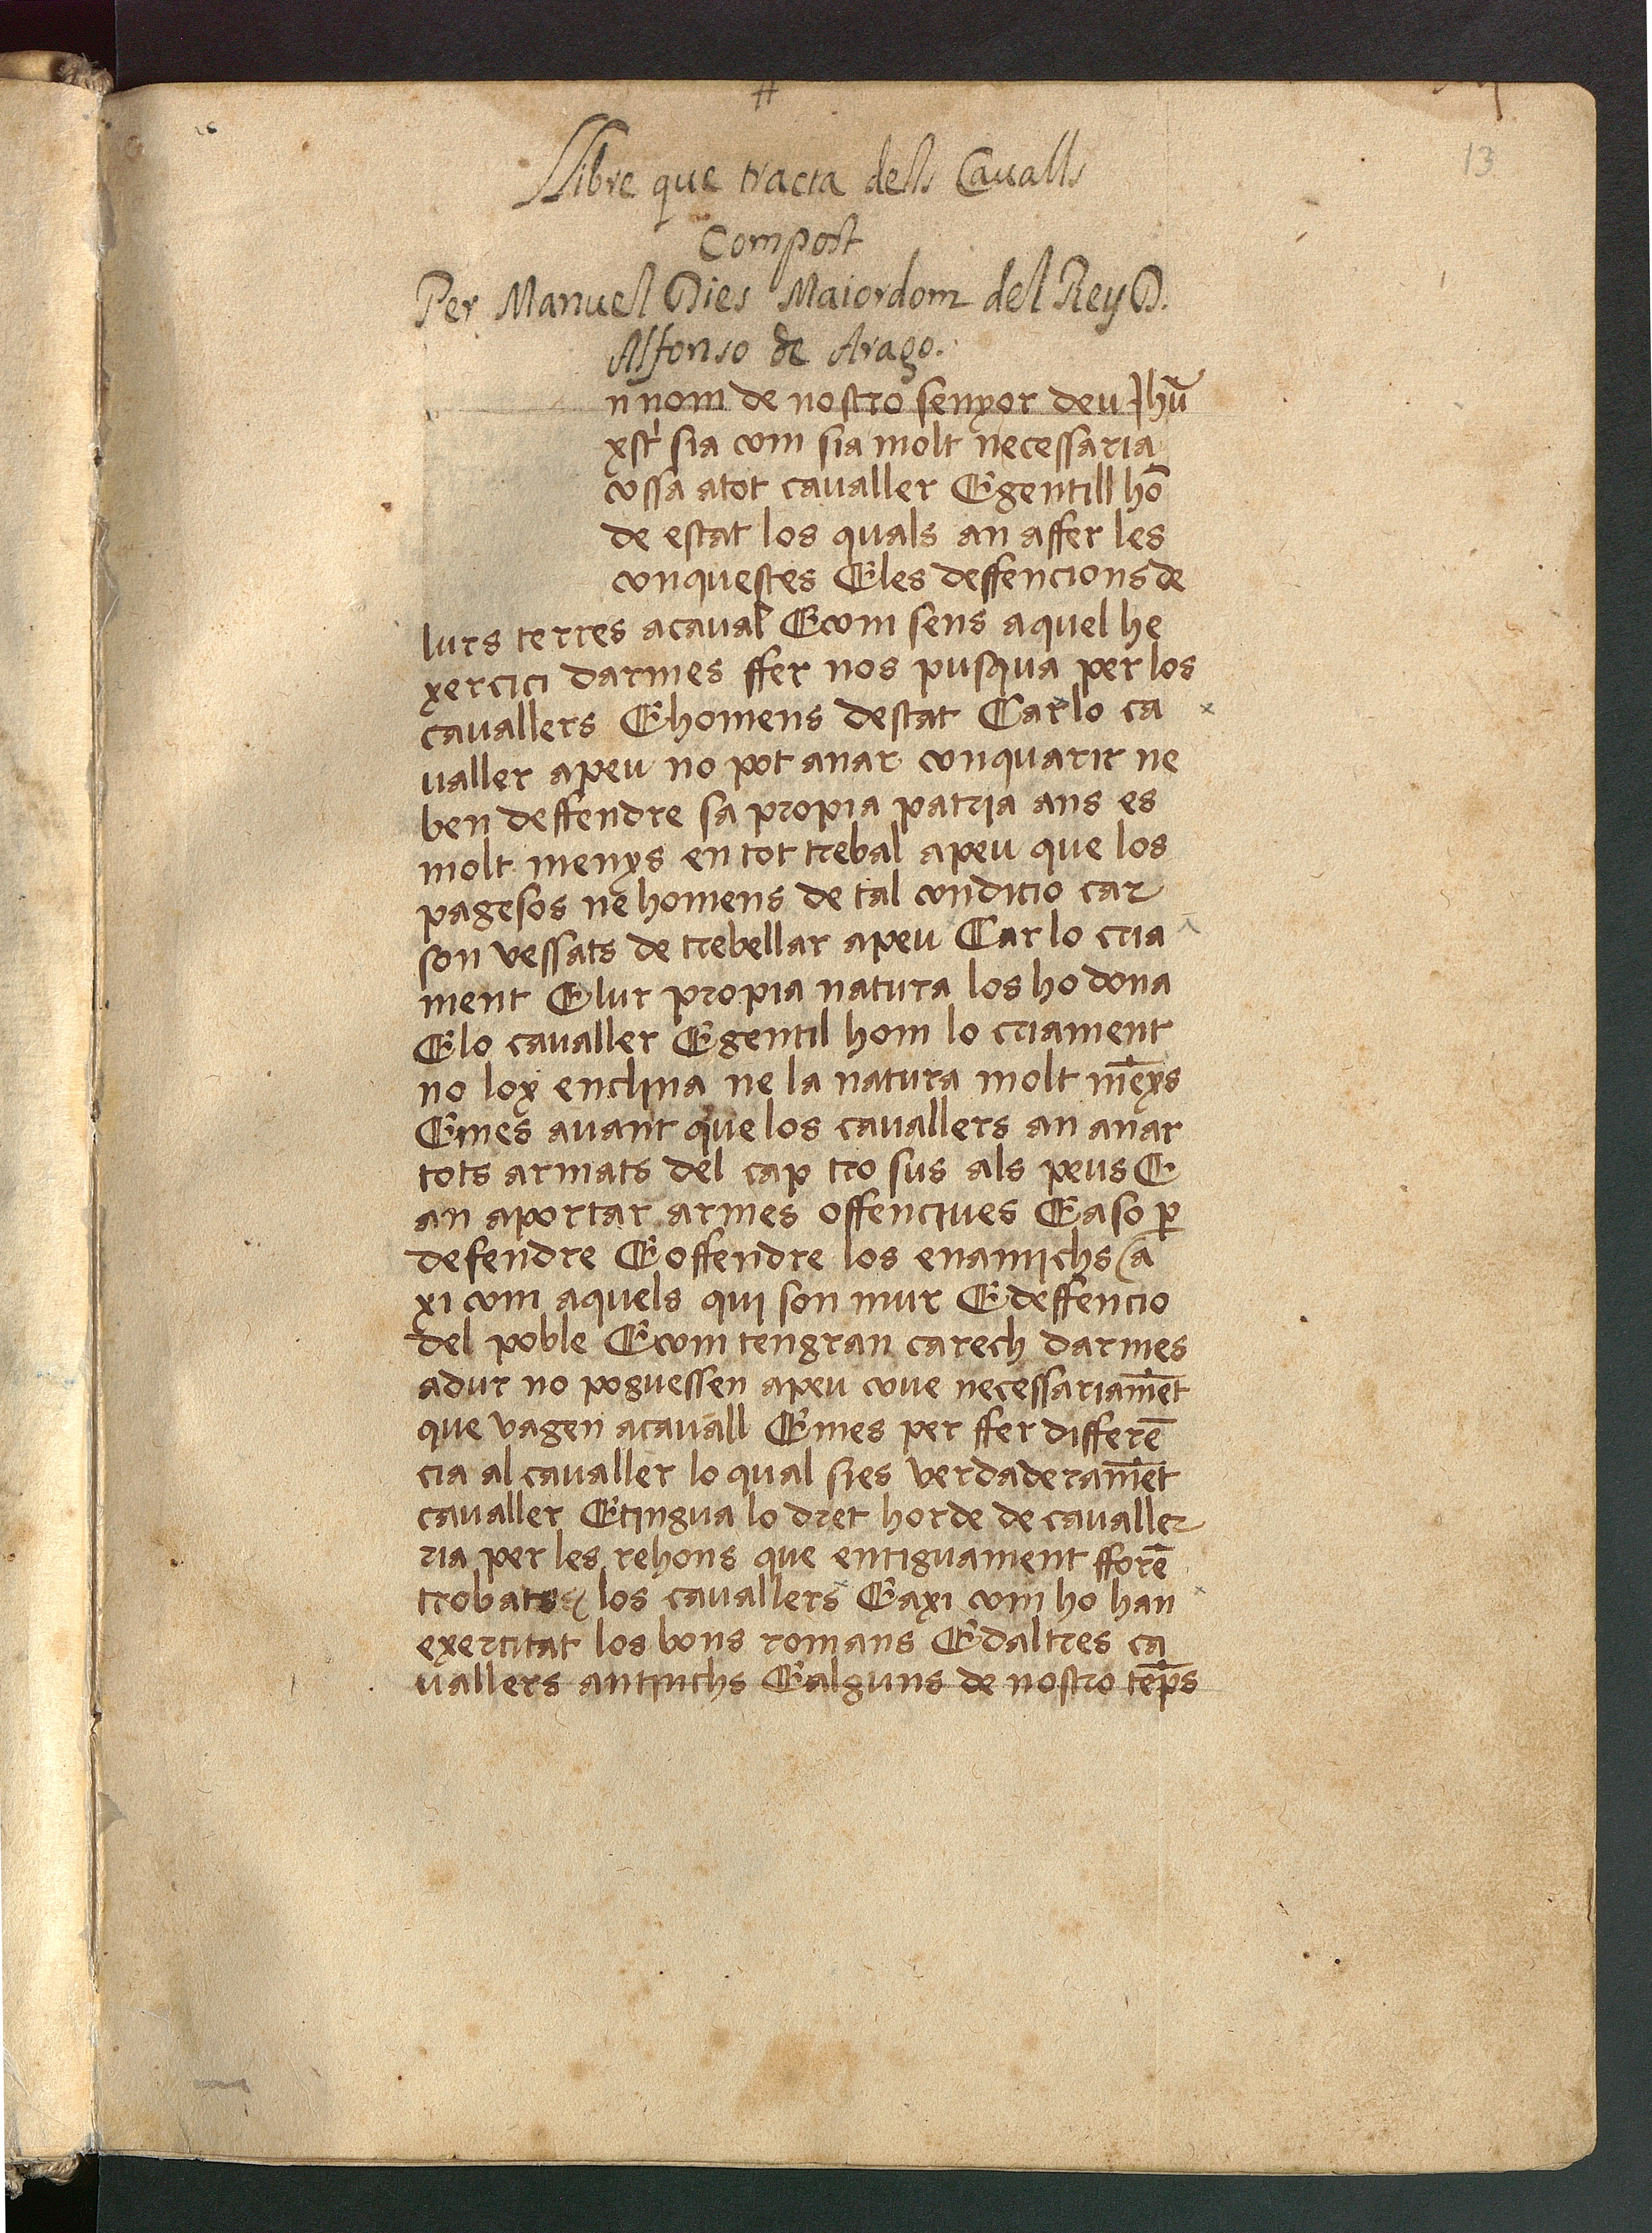 13
Llibre que tracta dels Cavalls
Compost
Per Manuel Dies Maiordom del Rey D.
Alfonso de Arago.
n nom de nostro senyor deu Jhũ
xst sia com sia molt necessaria
cossa atot cavaller E gentill hõ
de estat los quals an affer les
conquestes E les deffencions de
lurs terres acaval E com sens aquel he
xercici darmes ffer nos pusqua per los
cavallers E homens destat Car lo ca
valler apeu no pot anar conquarir ne
ben deffendre sa propia patria ans es
molt menys en tot trebal apeu que los
pagesos ne homens de tal condicio car
son vessats de trebellar apeu Car lo cria
ment E lur propia natura los ho dona
E lo cavaller E gentil hom lo criament
no loy enclina ne la natura molt mẽys
E mes avant que los cavallers an anar
tots armats del cap tro sus als peus E
an aportar armes offencives E aso p̱
defendre E offendre los enamichs (a
xi com aquels qui son mur E deffencio
del poble E com tengran carech darmes
adur no poguessen apeu cove necessariamẽt
que vagen acavall E mes per ffer differẽ
cia al cavaller lo qual sies verdaderamẽt
cavaller E tingua lo dret horde de cavaller
ria per les rehons que entiguament fforẽ
trobats los cavallers E axi com ho han
exercitat los bons romans E daltres ca
vallers antichs E alguns de nostro tẽps